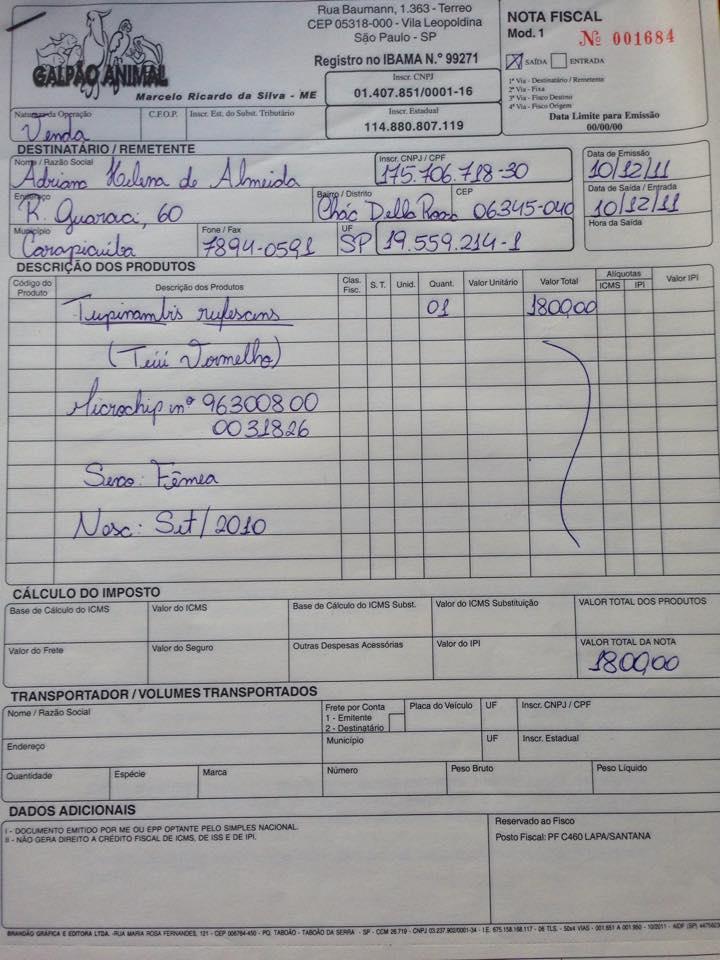 Rua Baumann, 1.363 - Terreo
CEP 05318-000 - Vila Leopoldina
São Paulo - SP
Registro no IBAMA N.º 99271
GALPÃO ANIMAL
Marcelo Ricardo da Silva - ME
Inscr. CNPJ
01.407.851/0001-16
Inscr. Estadual
114.880.807.119
NOTA FISCAL
Mod. 1
Nº 001684
X SAÍDA ENTRADA
1ª Via - Destinatário / Remetente
2ª Via - Fixa
3ª Via - Fisco Destino
4ª Via - Fisco Origem
Data Limite para Emissão
00/00/00
Natureza da Operação
C.F.O.P.
Inscr. Est. do Subst. Tributário
Venda
DESTINATÁRIO / REMETENTE
Nome / Razão Social
Adriana Helena de Almeida
Inscr. CNPJ / CPF
175.706.718-30
Data de Emissão
10/12/11
Endereço
R. Guaraci, 60
Bairro / Distrito
Chác Della Rosa
CEP
06345-040
Data de Saída / Entrada
10/12/11
Município
Carapicuiba
Fone / Fax
7894-0591
UF
SP
19.559.214-1
Hora da Saída
DESCRIÇÃO DOS PRODUTOS
Código do Produto
Descrição dos Produtos
Clas. Fisc.
S. T.
Unid.
Quant.
Valor Unitário
Valor Total
Alíquotas
ICMS
IPI
Valor IPI
Tupinambis rufescens 01 1800,00
(Teiú Vermelho)
Microchip nº 96300800
0031826
Sexo: Fêmea
Nasc: Set/2010
CÁLCULO DO IMPOSTO
Base de Cálculo do ICMS
Valor do ICMS
Base de Cálculo do ICMS Subst.
Valor do ICMS Substituição
VALOR TOTAL DOS PRODUTOS
Valor do Frete
Valor do Seguro
Outras Despesas Acessórias
Valor do IPI
VALOR TOTAL DA NOTA
1800,00
TRANSPORTADOR / VOLUMES TRANSPORTADOS
Nome / Razão Social
Frete por Conta
1 - Emitente
2 - Destinatário
Placa do Veículo
UF
Inscr. CNPJ / CPF
Endereço
Município
UF
Inscr. Estadual
Quantidade
Espécie
Marca
Número
Peso Bruto
Peso Líquido
DADOS ADICIONAIS
I - DOCUMENTO EMITIDO POR ME OU EPP OPTANTE PELO SIMPLES NACIONAL.
II - NÃO GERA DIREITO A CRÉDITO FISCAL DE ICMS, DE ISS E DE IPI.
Reservado ao Fisco
Posto Fiscal: PF C460 LAPA/SANTANA
BRANDÃO GRÁFICA E EDITORA LTDA. -RUA MARIA ROSA FERNANDES, 121 - CEP 006764-450 - PQ. TABOÃO - TABOÃO DA SERRA - SP - CCM 26.719 - CNPJ 03.237.902/0001-34 - I.E. 675.158.168.117 - 06 TLS. - 50x4 VIAS - 001.651 A 001.950 - 10/2011 - AIDF (SP)